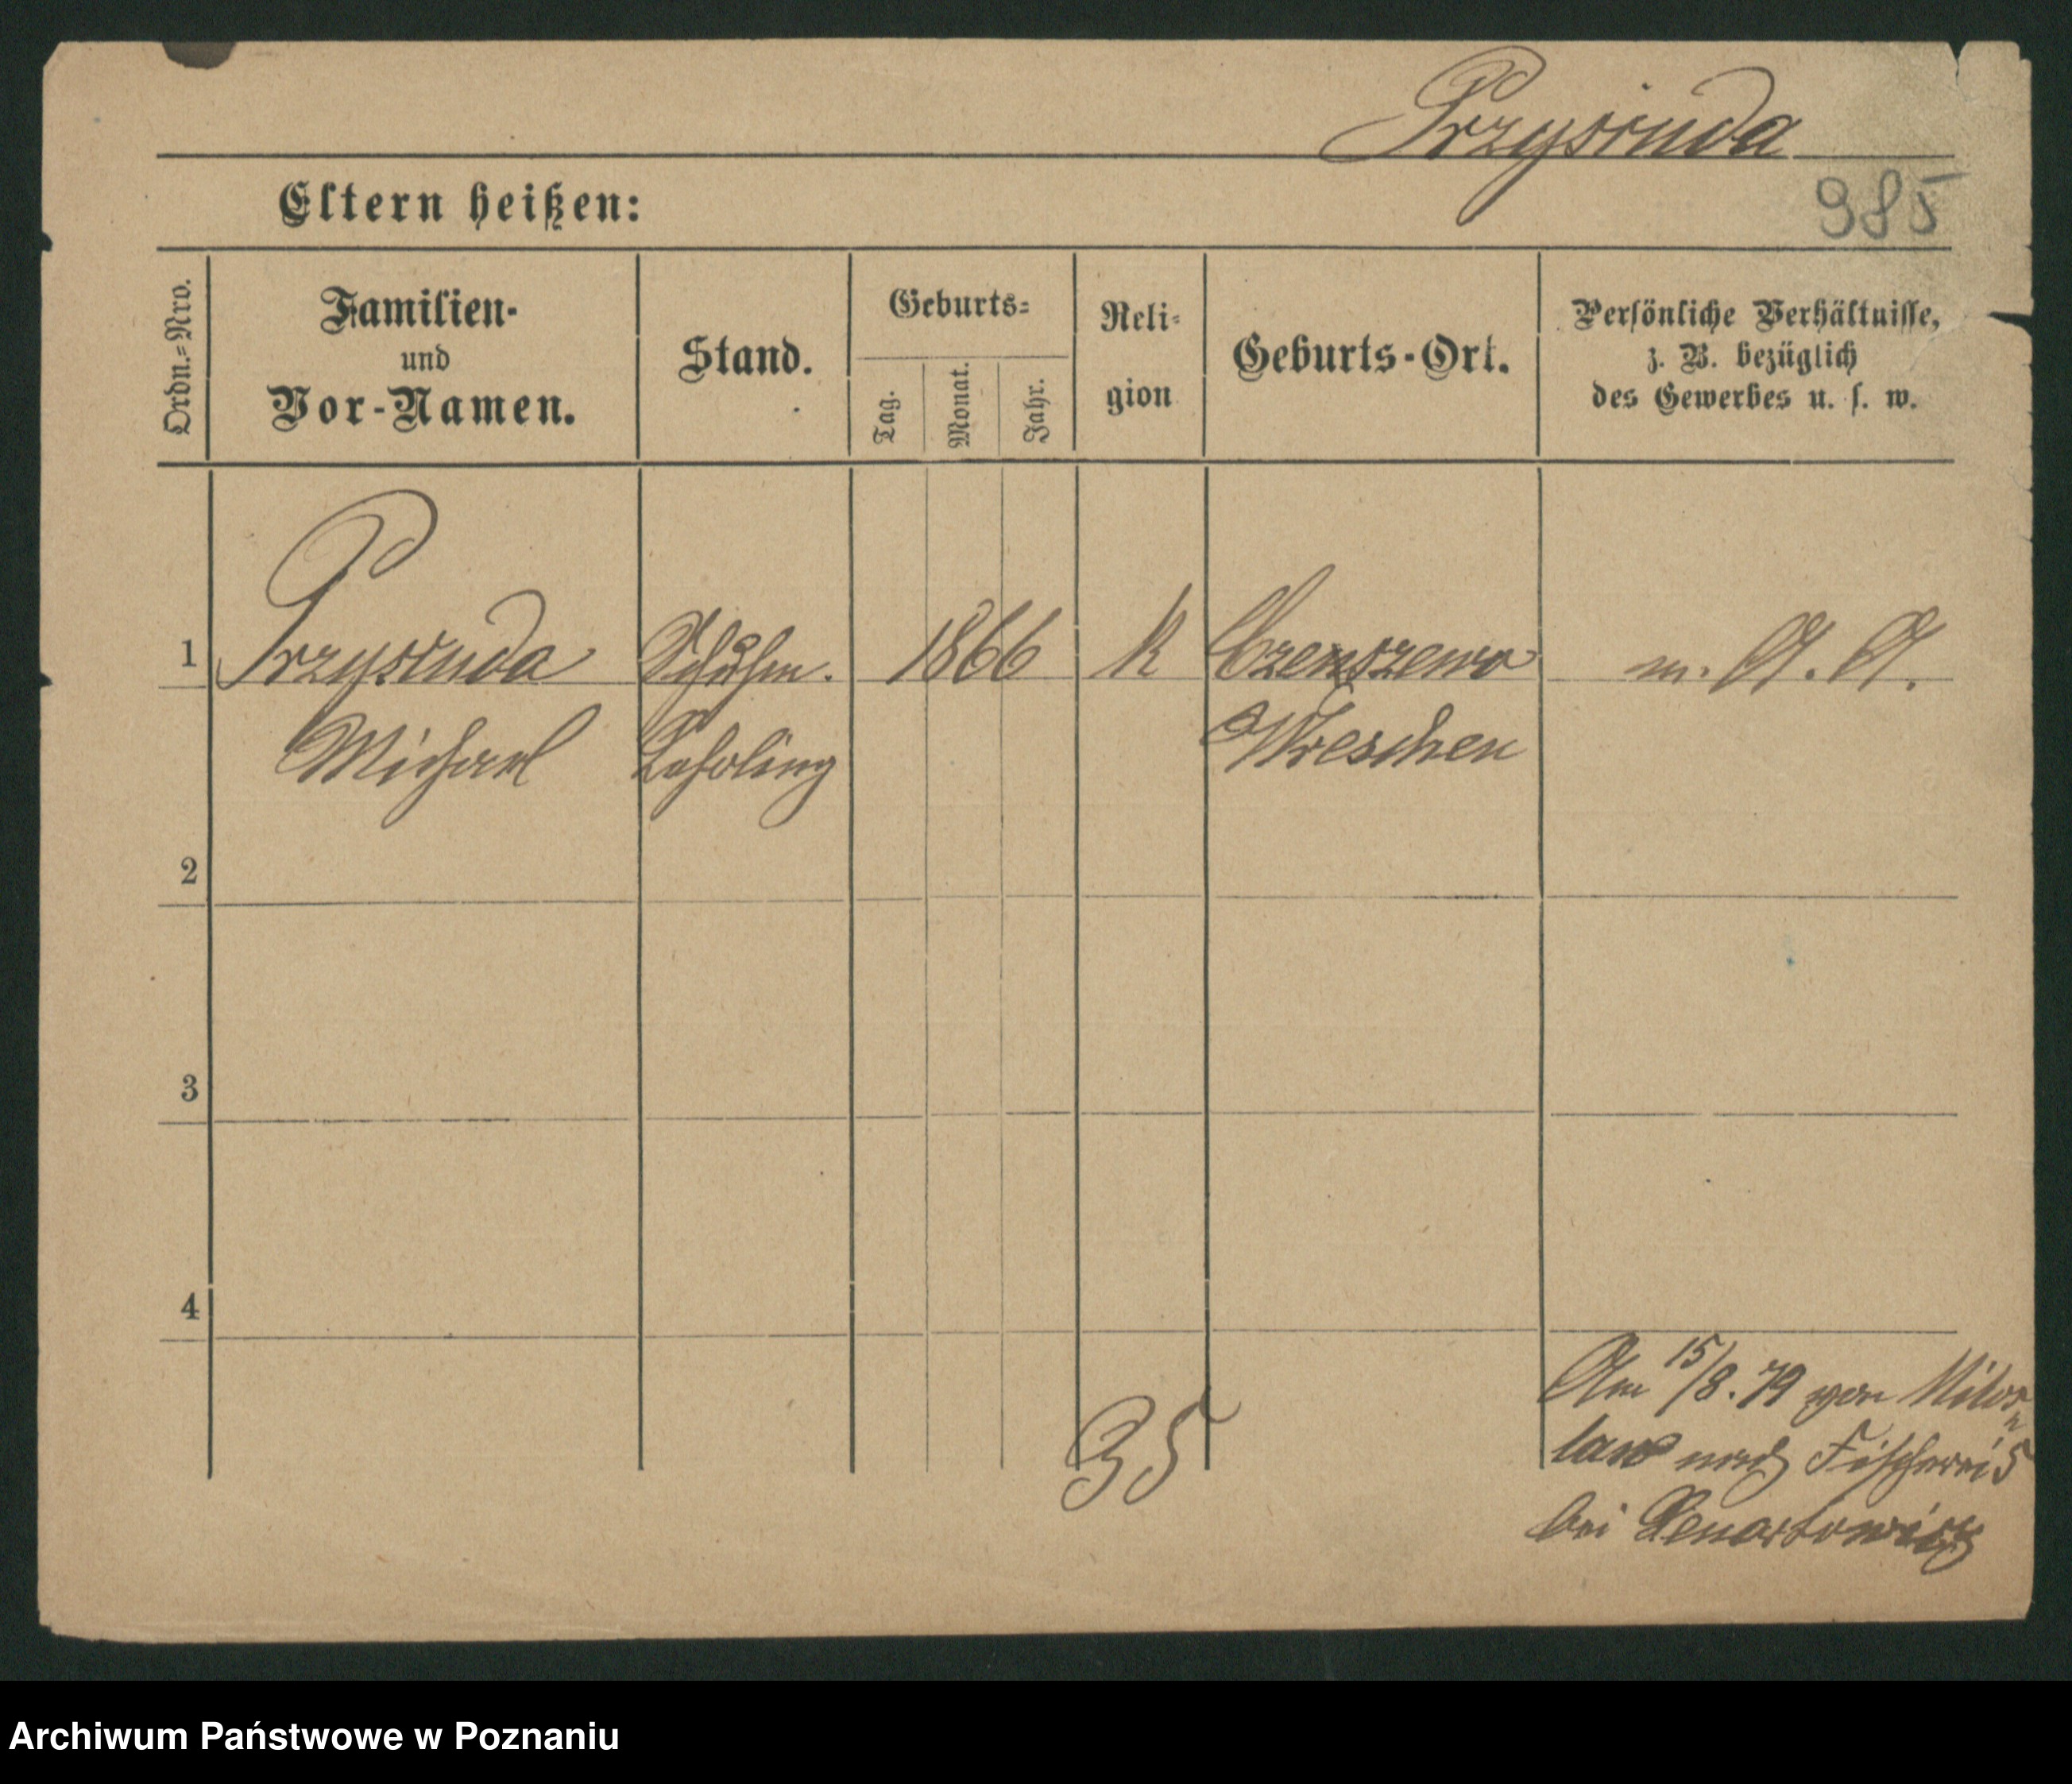 Przysiuda
Eltern heißen:
985
Ordn.=Nro.
Familien-
und
Vor-Namen.
Stand.
Geburts=
Tag.
Monat.
Jahr.
Reli=
gion
Geburts-Ort.
Persönliche Verhältnisse,
z. B. bezüglich
des Gewerbes u. s. w.
1 Przysiuda Schuhm. 1866 k Czenszewo m. A. A.
Michael Lehrling Wreschen
2
3
4
35
Am 15/8. 79 von Milos
law nach Fischerei 5
bei Lenartowicz
Archiwum Państwowe w Poznaniu